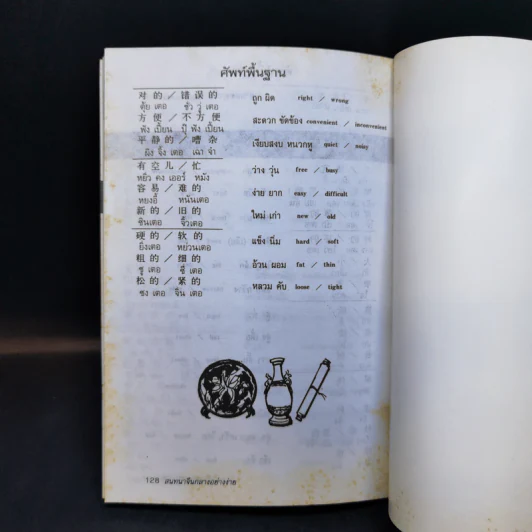 ศัพท์พื้นฐาน
对 的 / 错 误 的 ถูก ผิด right / wrong
ตุ้ย เตอ ชั่ว วู่ เตอ
方 便 / 不 方 便 สะดวก ขัดข้อง convenient / inconvenient
ฟัง เปี้ยน ปู้ ฟัง เปี้ยน
平 静 的 / 嘈 杂 เงียบสงบ หนวกหู quiet / noisy
ผิง จิ้ง เตอ เฉา จ๋า
有 空 儿 / 忙 ว่าง วุ่น free / busy
หยิ่ว คง เออร์ หมัง
容 易 / 难 的 ง่าย ยาก easy / difficult
หยงอี้ หนันเตอ
新 的 / 旧 的 ใหม่ เก่า new / old
ซินเตอ จิ้วเตอ
硬 的 / 软 的 แข็ง นิ่ม hard / soft
ยิ่งเตอ หย่วนเตอ
粗 的 / 细 的 อ้วน ผอม fat / thin
ชู เตอ ซี่ เตอ
松 的 / 紧 的 หลวม คับ loose / tight
ซง เตอ จิ่น เตอ
128 สนทนาจีนกลางอย่างง่าย